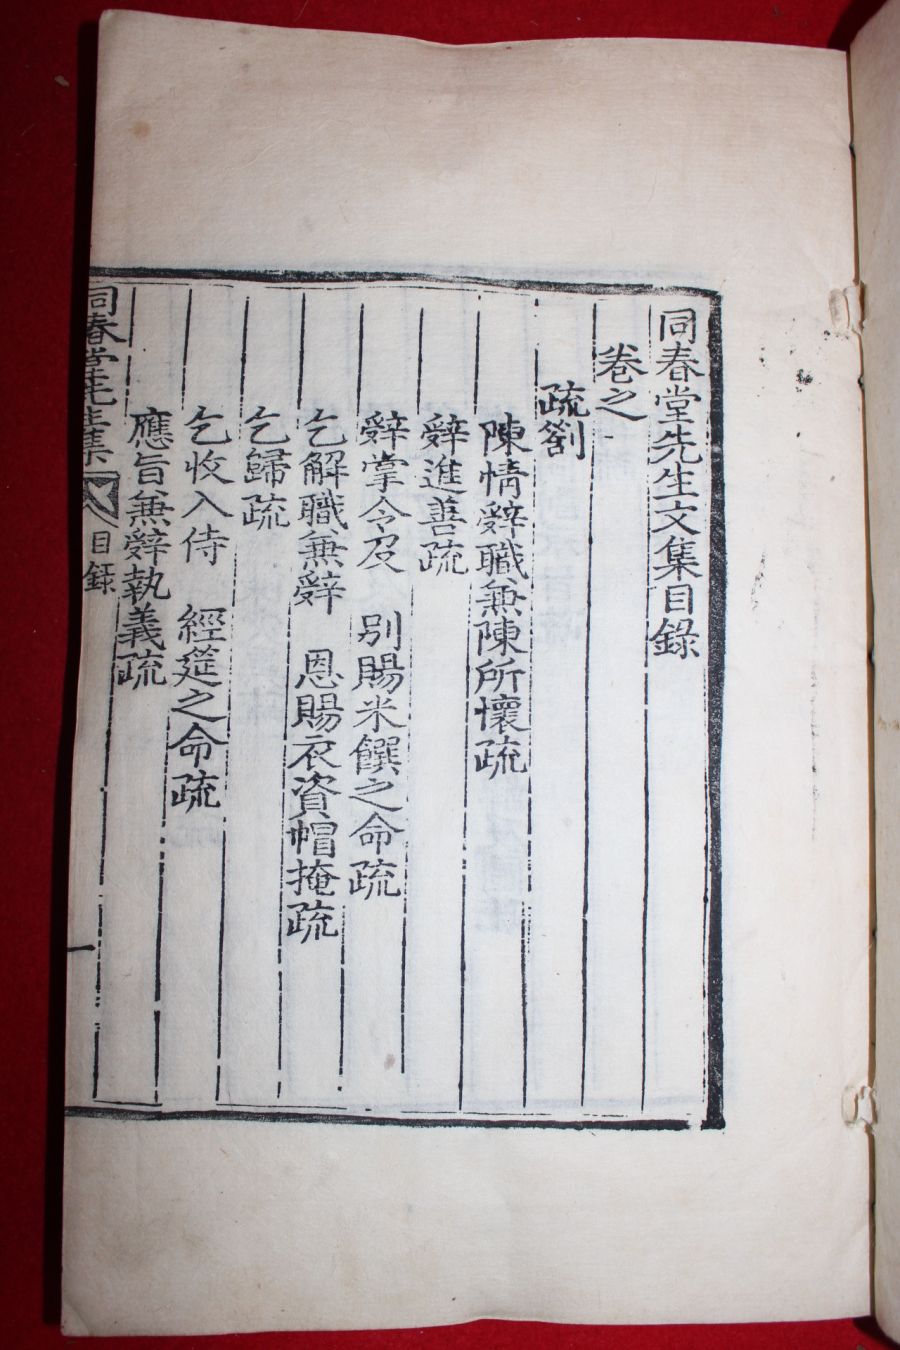 同春堂先生文集目錄
卷之一
疏劄
陳情辭職兼陳所懷疏
辭進善疏
辭掌令及　別賜米饌之命疏
乞解職兼辭　恩賜衣資帽掩疏
乞歸疏
乞收入侍　經筵之命疏
應旨兼辭執義疏
同春堂先生集　目錄　一